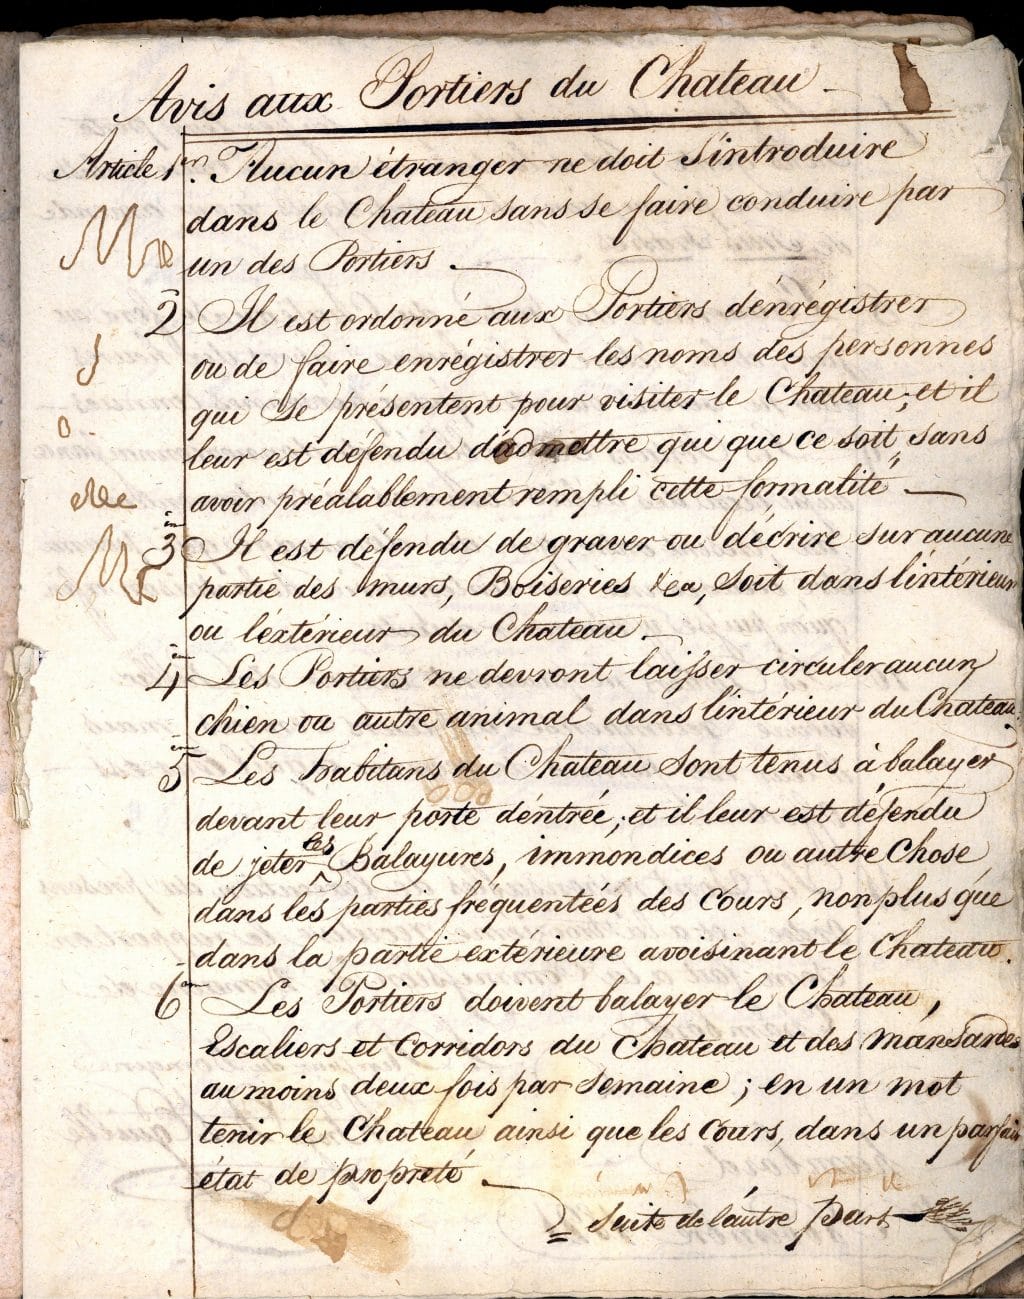 Avis aux Portiers du Chateau
Article 1er. Aucun étranger ne doit s'introduire
dans le Chateau sans se faire conduire par
un des Portiers.
2 Il est ordonné aux Portiers d'énrégistrer
ou de faire enrégistrer les noms des personnes
qui se présentent pour visiter le Chateau; et il
leur est défendu d'admettre qui que ce soit, sans
avoir préalablement rempli cette formalité
3 Il est défendu de graver ou d'écrire sur aucune
partie des murs, Boiseries &ca, soit dans l'intérieur
ou l'éxtérieur du Chateau.
4 Les Portiers ne devront laisser circuler aucun
chien ou autre animal dans l'intérieur du Chateau.
5 Les habitans du Chateau sont tenus à balayer
devant leur porte d'éntrée; et il leur est défendu
de jeter les Balayures, immondices ou autre Chose
dans les parties fréquentées des Cours, non plus que
dans la partie extérieure avoisinant le Chateau.
6 Les Portiers doivent balayer le Chateau,
Escaliers et Corridors du Chateau et des Mansardes
au moins deux fois par semaine; en un mot
tenir le Chateau ainsi que les Cours, dans un parfait
état de propreté.
Suite de l'autre Part